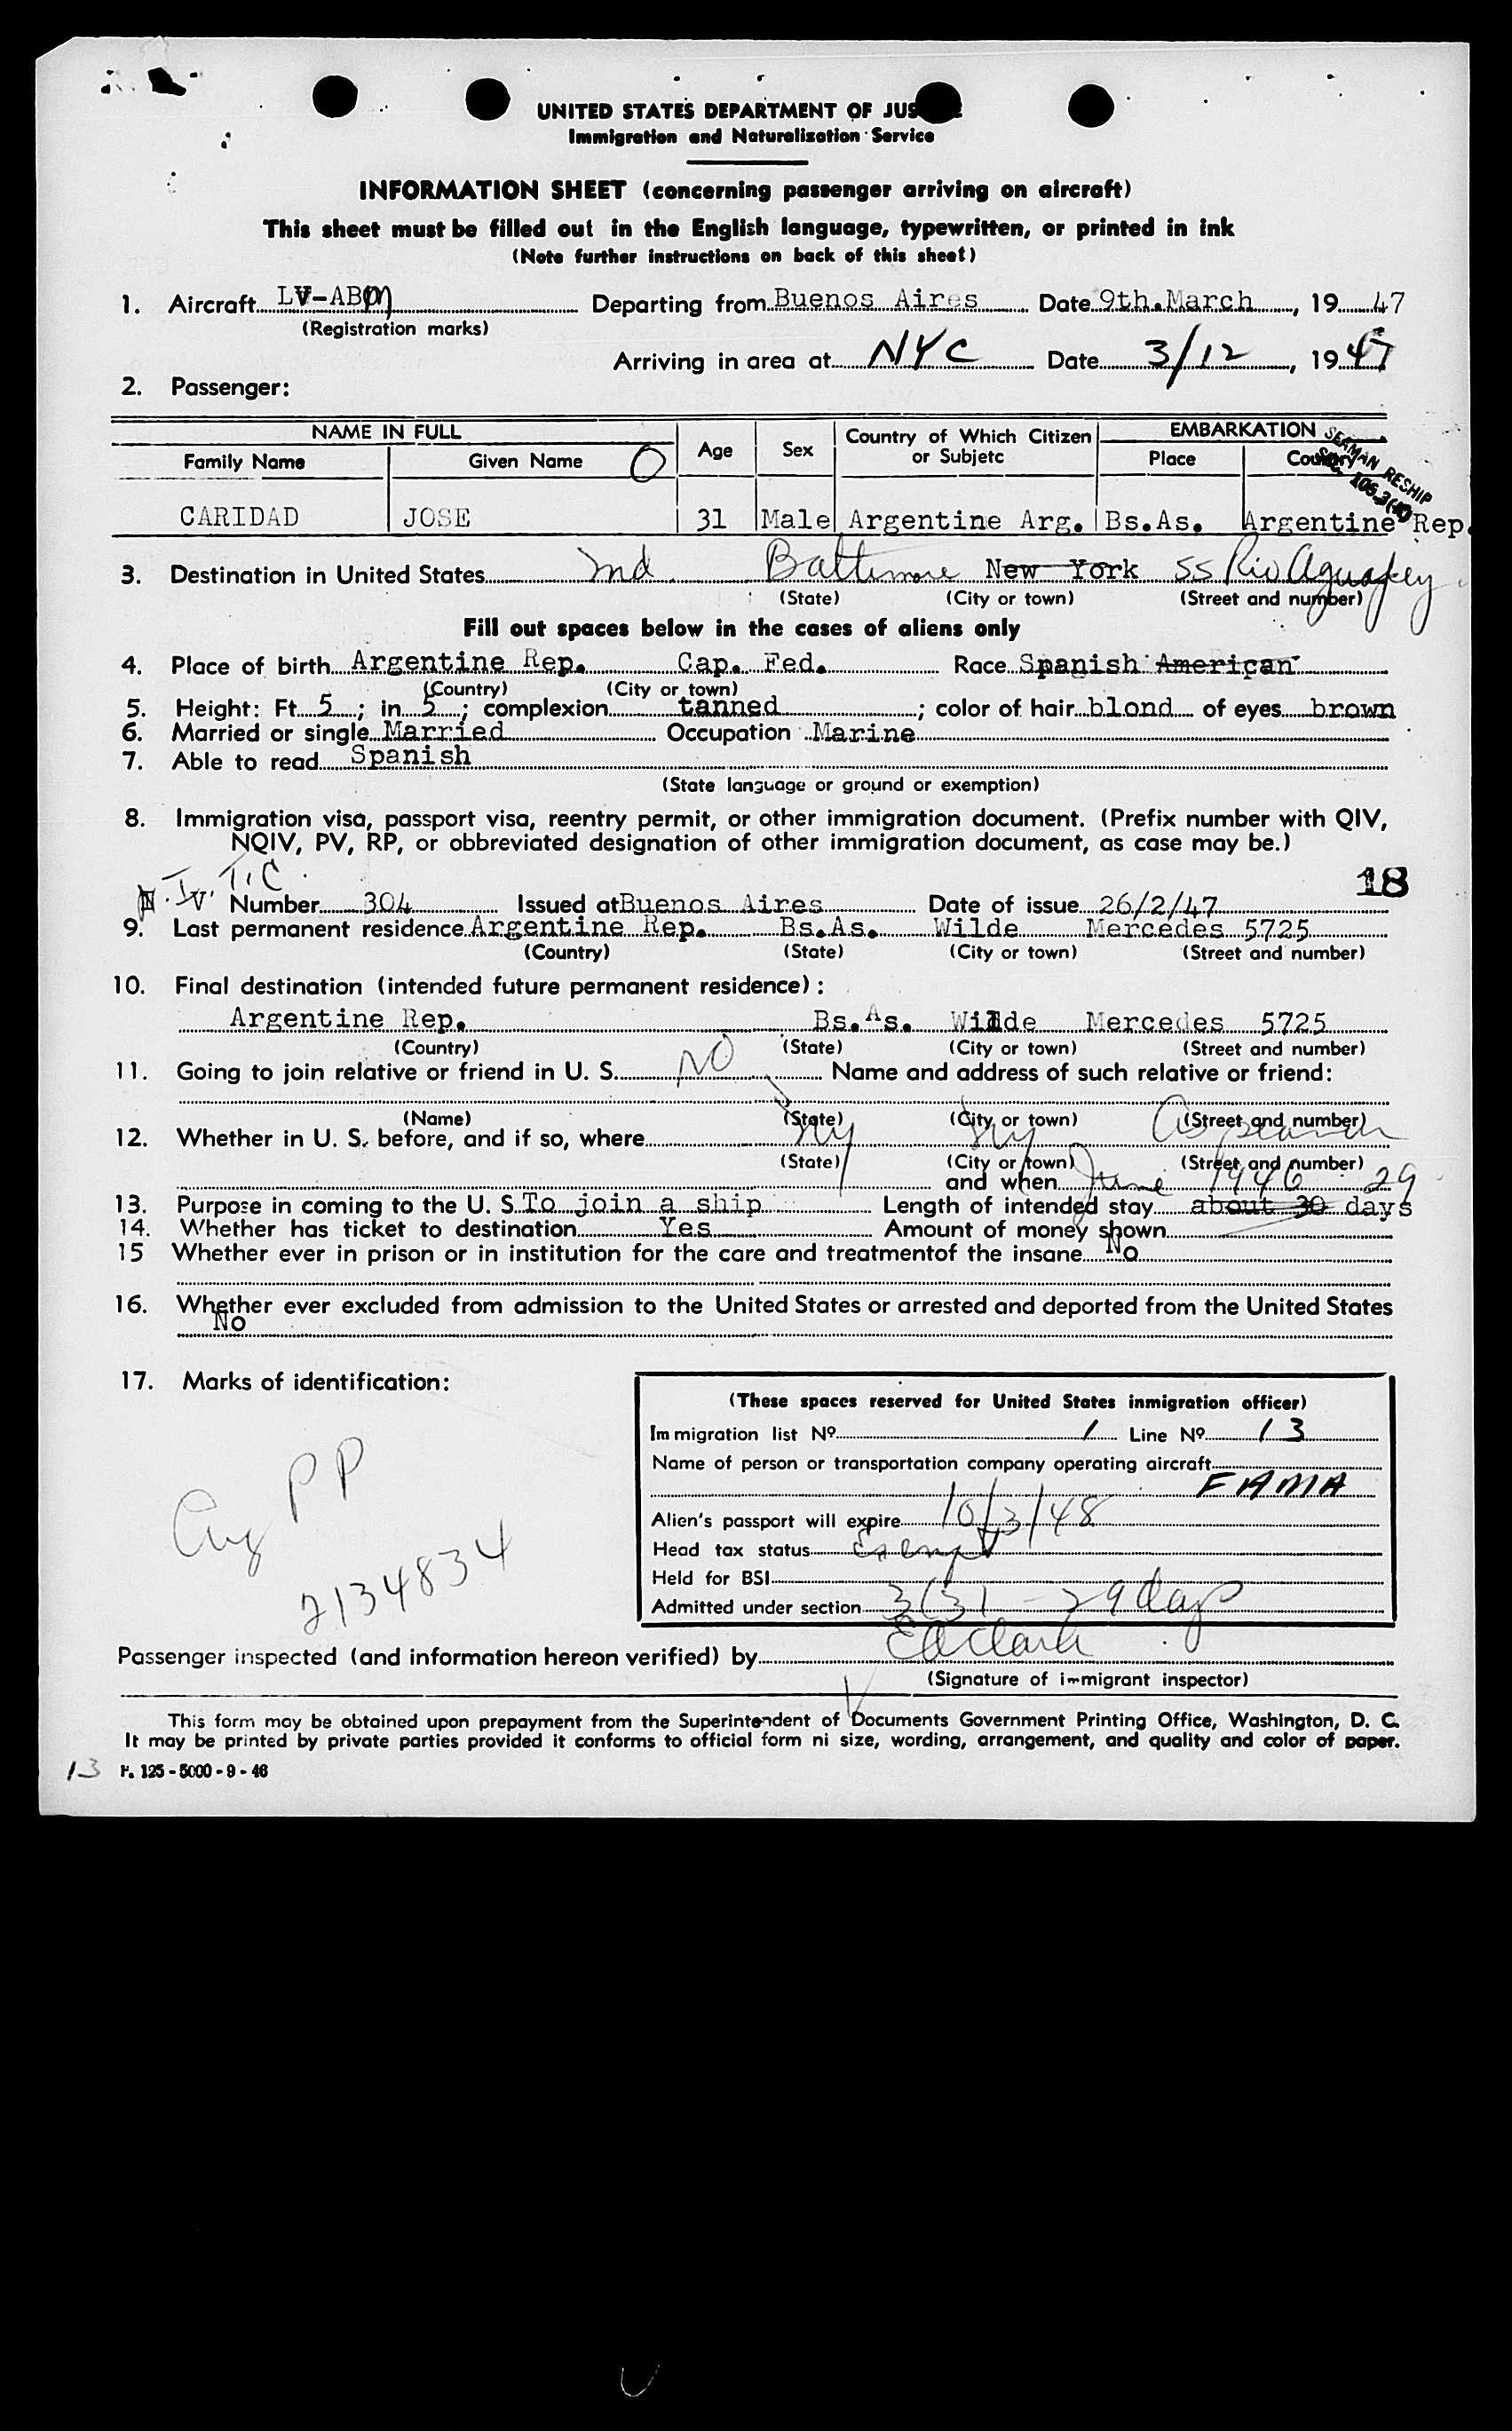 UNITED STATES DEPARTMENT OF JUS
Immigration and Naturalization Service
INFORMATION SHEET (concerning passenger arriving on aircraft)
This sheet must be filled out in the English language, typewritten, or printed in ink
(Note further instructions on back of this sheet)
1. Aircraft LV-ABM Departing from Buenos Aires Date 9th.March, 19 47
(Registration marks)
Arriving in area at NYC Date 3/12, 19 47
2. Passenger:
NAME IN FULL Age Sex Country of Which Citizen or Subjetc EMBARKATION
Family Name Given Name O Place Country
SEAMAN RESHIP
CARIDAD JOSE 31 Male Argentine Arg. Bs.As. Argentine Rep.
3. Destination in United States Md Baltimore New York SS Rio Aguapey
(State) (City or town) (Street and number)
Fill out spaces below in the cases of aliens only
4. Place of birth Argentine Rep. Cap. Fed. Race Spanish American
(Country) (City or town)
5. Height: Ft. 5; in. 5; complexion tanned; color of hair blond of eyes brown
6. Married or single Married Occupation Marine
7. Able to read Spanish
(State language or ground or exemption)
8. Immigration visa, passport visa, reentry permit, or other immigration document. (Prefix number with QIV,
NQIV, PV, RP, or obbreviated designation of other immigration document, as case may be.)
18
T.C
Number 304 Issued at Buenos Aires Date of issue 26/2/47
9. Last permanent residence Argentine Rep. Bs.As. Wilde Mercedes 5725
(Country) (State) (City or town) (Street and number)
10. Final destination (intended future permanent residece):
Argentine Rep. Bs.As. Wilde Mercedes 5725
(Country) (State) (City or town) (Street and number)
11. Going to join relative or friend in U. S. NO Name and address of such relative or friend:
(Name) (State) (City or town) (Street and number)
12. Whether in U. S. before, and if so, where Ny Ny As seaman
(State) (City or town) (Street and number)
and when June 1946
29
13. Purpose in coming to the U. S. To join a ship Length of intended stay about 30 days
14. Whether has ticket to destination Yes Amount of money shown
15 Whether ever in prison or in institution for the care and treatmentof the insane No
16. Whether ever excluded from admission to the United States or arrested and deported from the United States
No
17. Marks of identification:
Arg PP
2134834
(These spaces reserved for United States inmigration officer)
Immigration list Nº 1 Line Nº 13
Name of person or transportation company operating aircraft
FAMA
Alien's passport will expire 10/3/48
Head tax status Exempt
Held for BSI
Admitted under section 3(3) - 29 days
Passenger inspected (and information hereon verified) by Ed Clark
(Signature of immigrant inspector)
This form may be obtained upon prepayment from the Superintendent of Documents Government Printing Office, Washington, D. C.
It may be printed by private parties provided it conforms to official form ni size, wording, arrangement, and quality and color of paper.
13 F. 125 - 5000 - 9 - 46